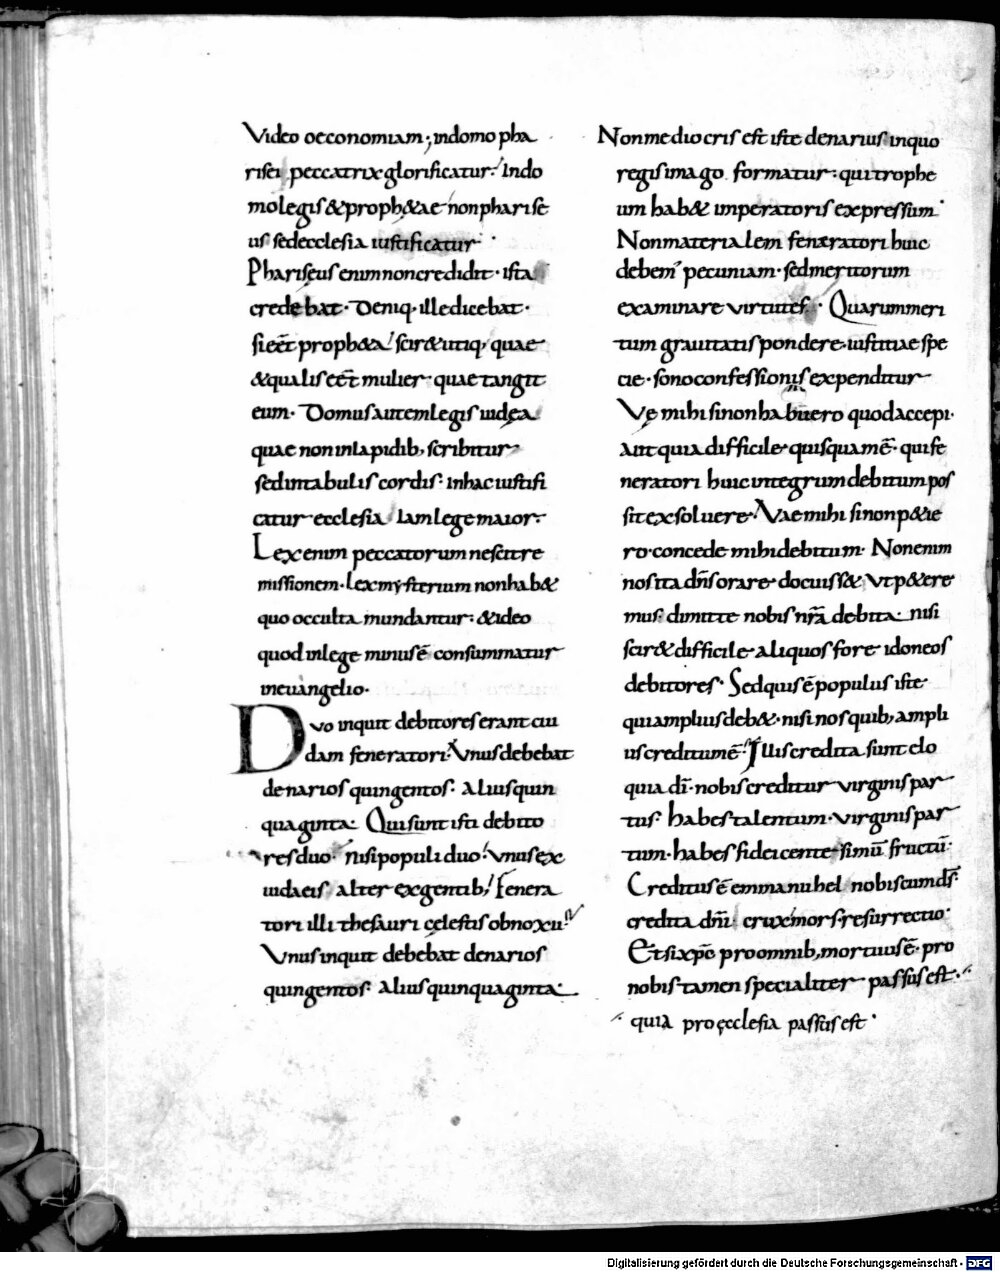 Video oeconomiam; indomo pha
risei peccatrix glorificatur. Indo
molegis & proph&ae non pharise
us sed ecclesia iustificatur
Phariseus enim non credidit. ista
credebat. Deniq, ille dicebat.
si eēt proph&a scir& utiq, quae
& qualis eēt mulier quae tangit
eum. Domus autem legis iudęa
quae non in lapidib, scribitur
sed in tabulis cordis. in hac iustifi
catur ecclesia iam lege maior.
Lex enim peccatorum nescit re
missionem. lex mysterium non hab&
quo occulta mundantur. & ideo
quod in lege minus ē consummatur
in euangelio.
Duo inquit debitores erant cui
dam feneratori. Unus debebat
denarios quingentos. alius quin
quaginta. Qui sunt isti debito
res duo. nisi populi duo. Unus ex
iudaeis alter ex gentib, fenera
tori illi thesauri cęlestis obnoxii.
Unus inquit debebat denarios
quingentos. alius quinquaginta.
Non mediocris est iste denarius in quo
regis imago formatur. qui trophe
um hab& imperatoris expressum.
Non materialem feneratori huic
debem' pecuniam. sed meritorum
examinare virtutes. Quarum meri
tum grauitatis pondere. iustitiae spe
cie. sono confessionis expenditur
Ve mihi si non habuero quod accepi.
Aut quia difficile quisquam ē. qui fe
neratori huic integrum debitum pos
sit exsoluere. Vae mihi si non p&ie
ro. concede mihi debitum. Non enim
nos ita dn̄s orare docuiss& ut p&ere
mus. dimitte nobis nr̄a debita. nisi
scir& difficile aliquos fore idoneos
debitores. Sed quis ē populus iste
qui amplius deb&. nisi nos quib, ampli
us creditum ē. Illis credita sunt elo
quia dī. nobis creditur virginis par
tus. habes talentum. virginis par
tum. habes fidei centesimū fructū.
Creditus ē emmanuhel nobiscum ds̄.
credita dn̄i crux. mors. resurrectio.
Et si xp̄c pro omnib, mortuus ē. pro
nobis tamen specialiter passus est.
quia pro ęcclesia passus est.
Digitalisierung gefördert durch die Deutsche Forschungsgemeinschaft - DFG